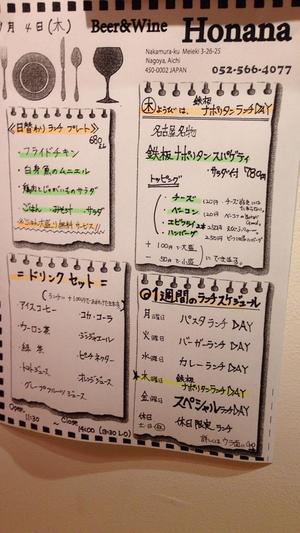 月4日(木) Beer&Wine Honana
Nakamura-ku Meieki 3-26-25
Nagoya, Aichi
450-0002 JAPAN 052-566-4077
《日替わりランチプレート》
680
・フライドチキン
・白身魚のムニエル
・鶏肉とじゃがいものサラダ
・ごはん ・みそ汁 ・サラダ
ごはん大盛り無料サービス!!
木ようびは、鉄板ナポリタンランチDAY
名古屋名物
鉄板ナポリタンスパゲティ
サラダ付 780円
トッピング
・チーズ 120円
・ベーコン 120円
・エビフライ2本
・ハンバーグ
+100円で大盛
-50円で小盛 にできます。
=ドリンクセット=
(ランチ+100円でお付けできます)
アイスコーヒー コカ・コーラ
ウーロン茶 ジンジャエール
緑茶 ピーチネクター
トマトジュース オレンジジュース
グレープフルーツジュース
Open 11:30 ~ Close 14:00 (13:30 LO)
◎1週間のランチスケジュール
月曜日 パスタランチDAY
火曜日 バーガーランチDAY
水曜日 カレーランチDAY
木曜日 鉄板ナポリタンランチDAY
金曜日 スペシャルランチDAY
休日 土・日・祝 休日限定ランチ
詳しくはウラ面へGO